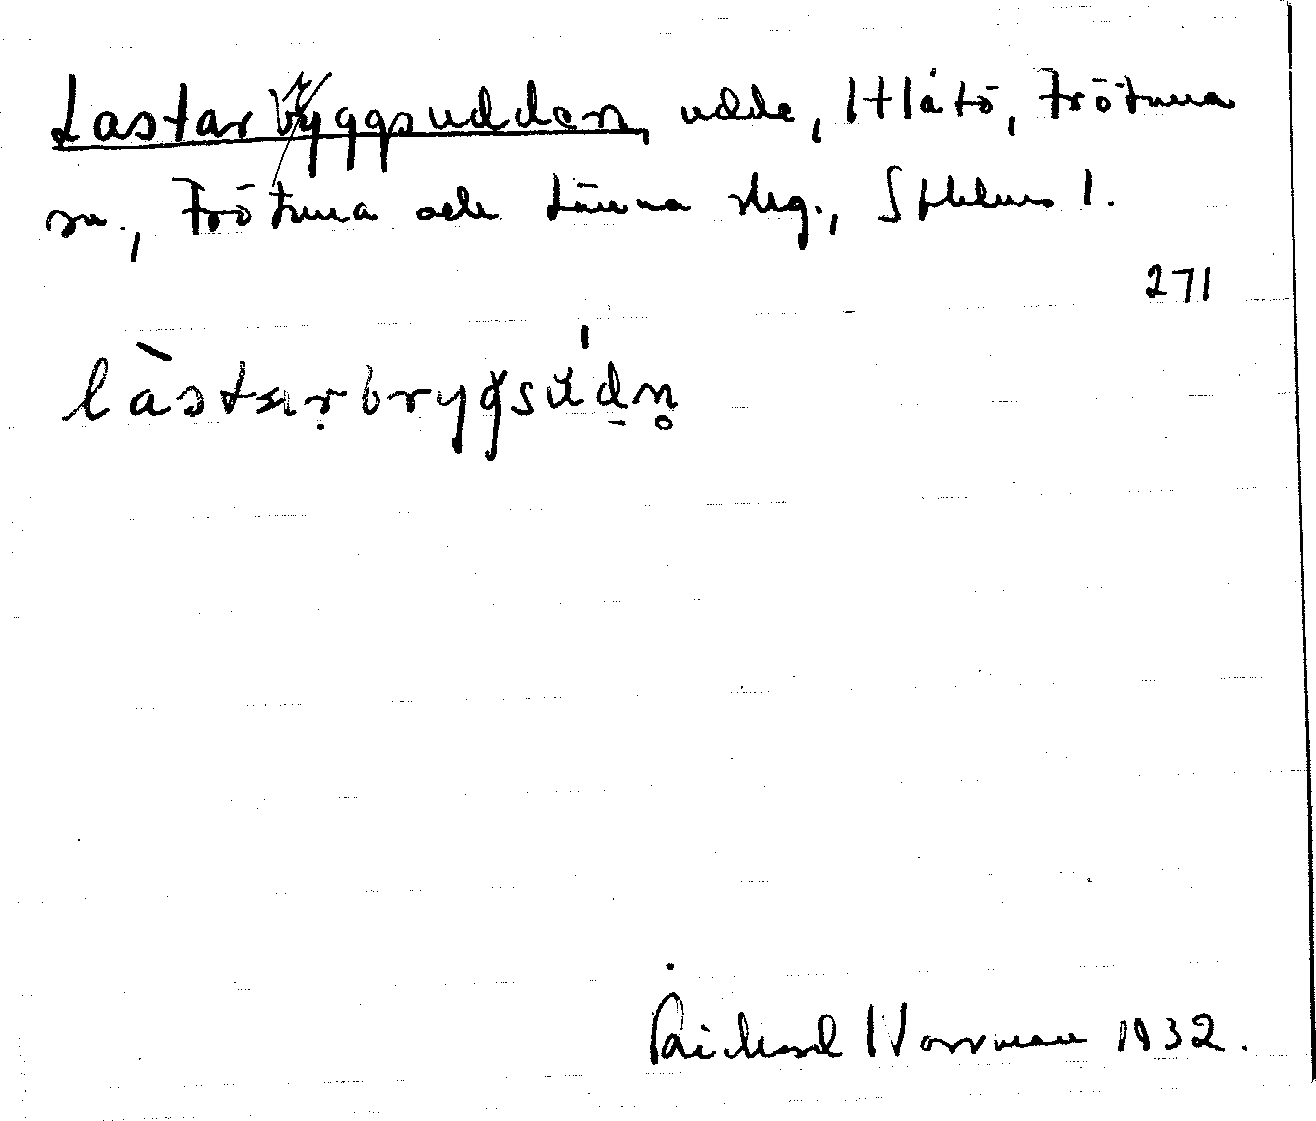 Lastarbryggsudden, udde, Itlåtö, Frötuna
sn., Frötuna och Länna skg., Sthlms l.
271
làstarbrygsúdn̥
Richard Norrman 1932.